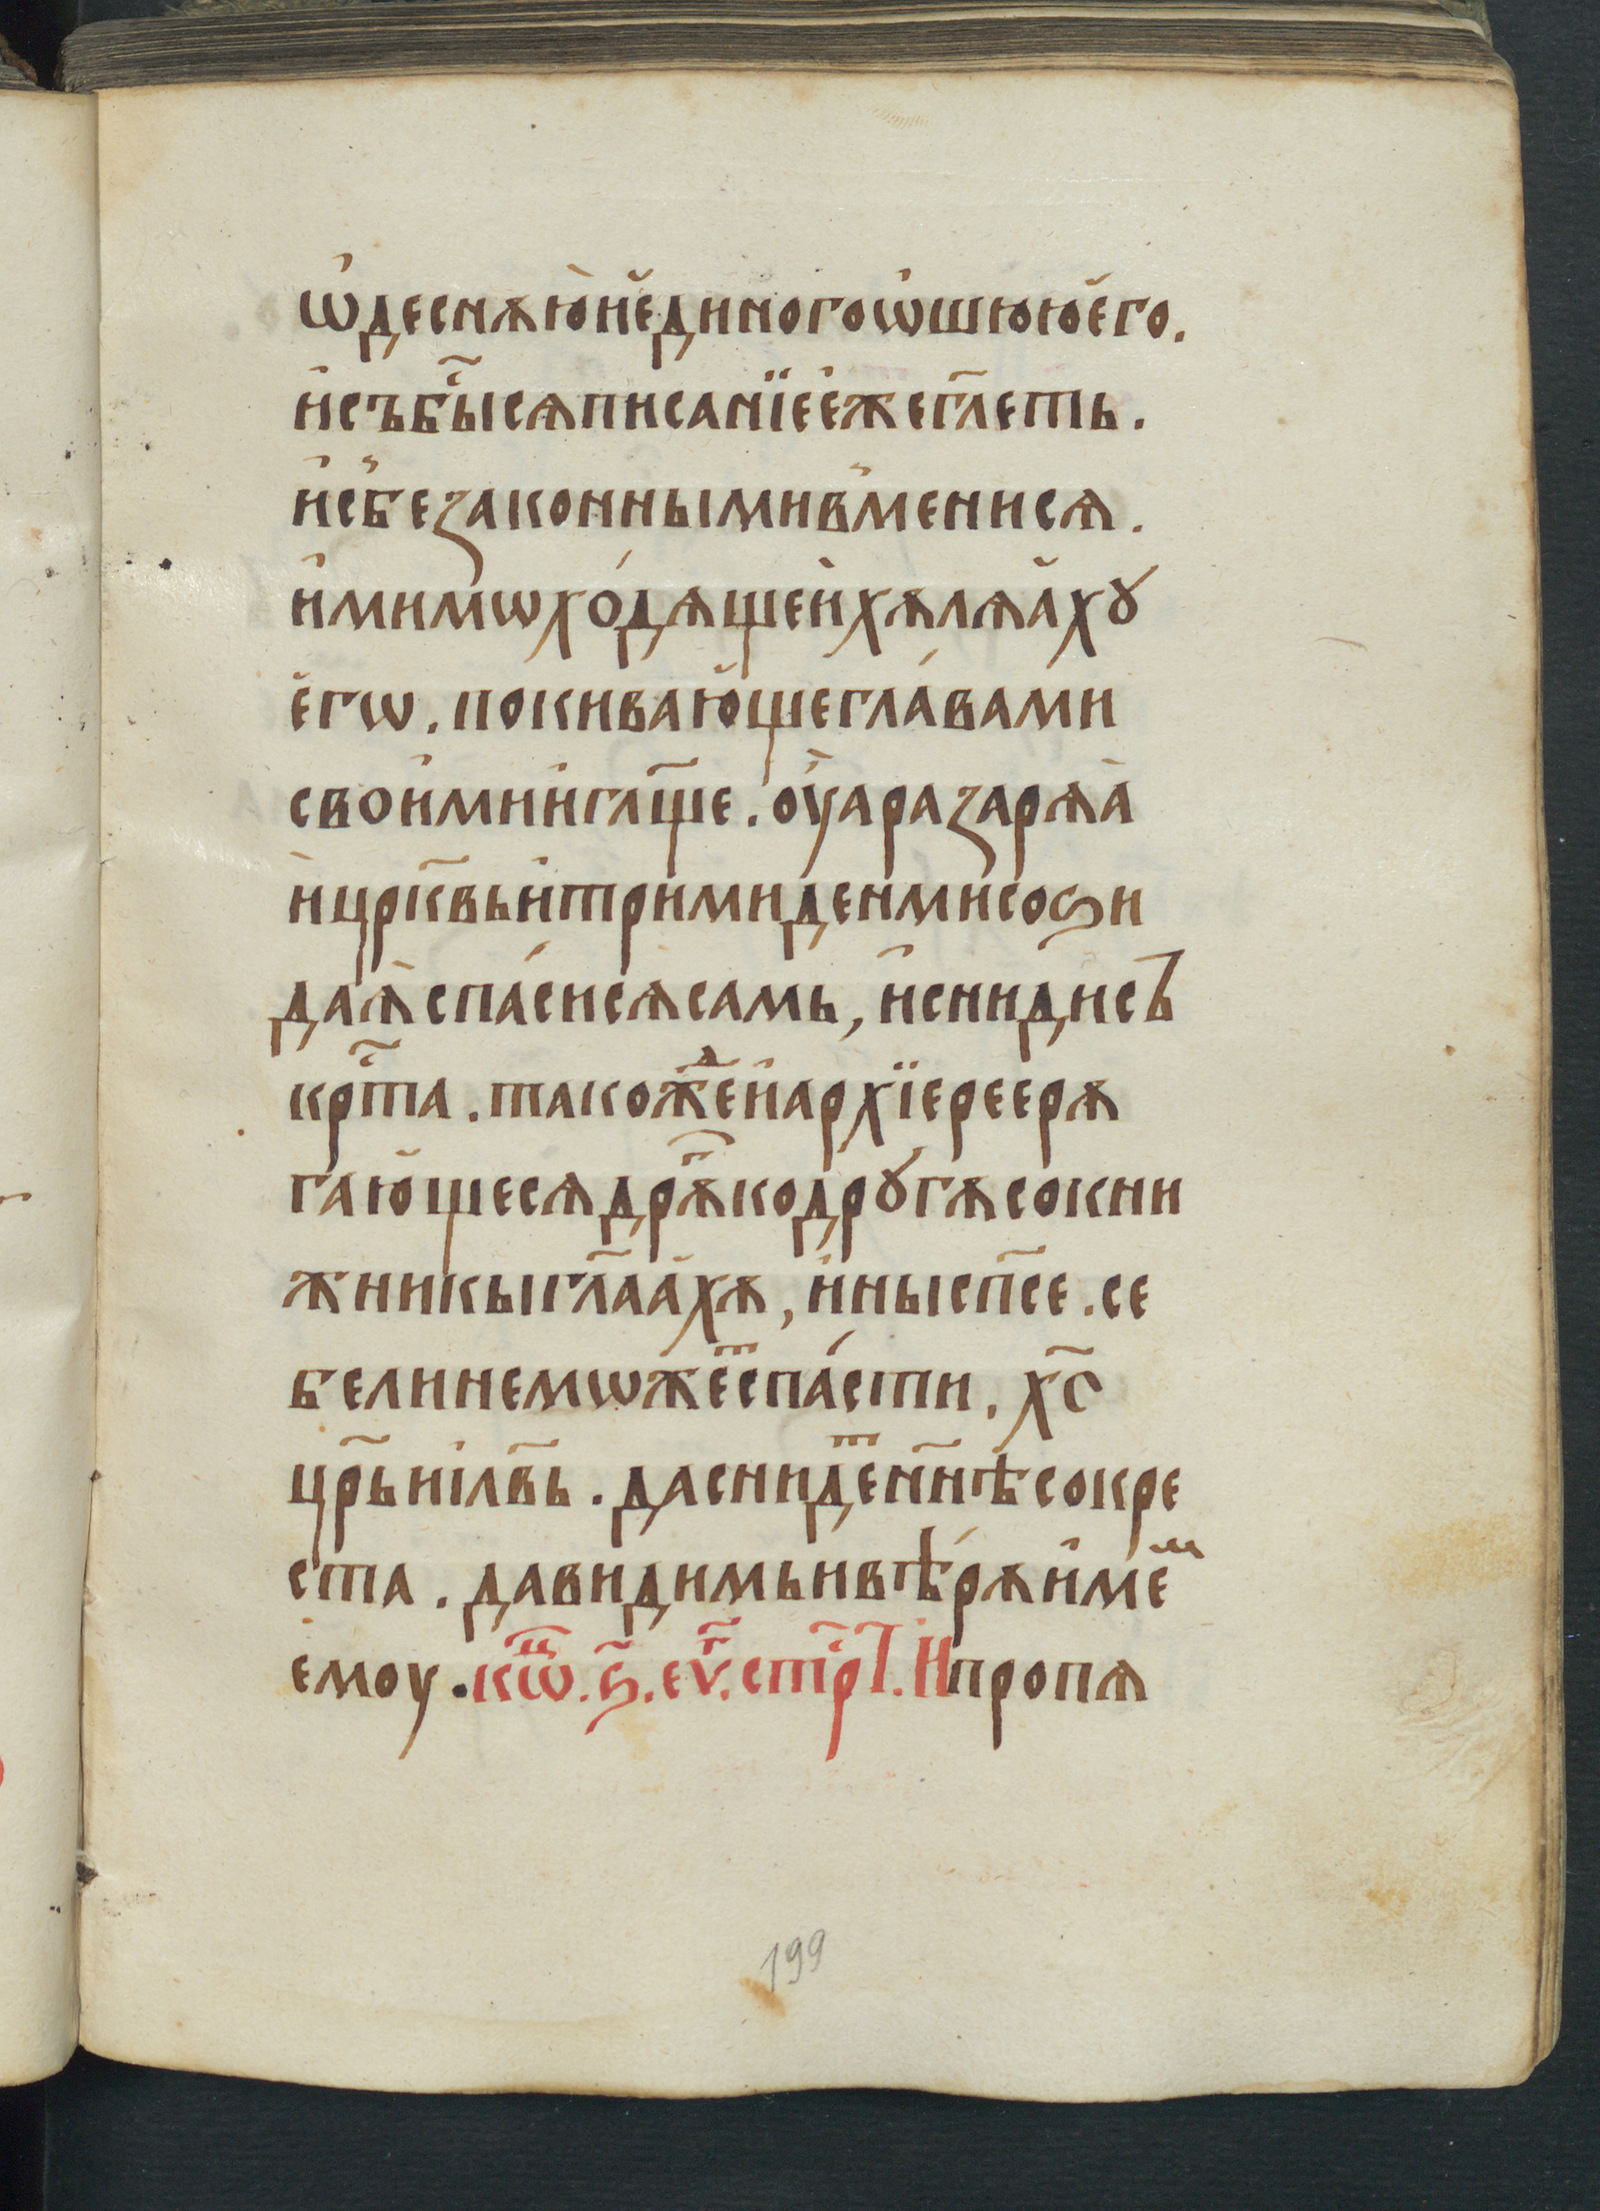 ѡ҆деснѫю҆и҆е҆диногоѡ҆шююе҆го.
и҆събы̑сѧписанїеє҆жегл҃еть.
и҆сбезаконнымив҆менисѧ.
и҆мимѡхо́дѧщеи҆хѫлѧа҆хꙋ
е҆гѡ. покиваю҆щегла́вами
свои҆мии҆гл҃ще. оу҆аразарѧа҆
и҆цр҃квьи҆трими́денмисоѕи
даѧ҆спа́сисѧсамь, и҆снидисъ
кр҇та. такожⷣеи҆архїереерѫ
гаю҆щесѧдрꙋⷢ҇кодрꙋгѫсокни
жникыгл҃аа҆хѫ, и҆нысп҃се. се
белинемѡжеⷮспа́сти. х҃с
цр҃ьиі҆л҃вь. даснидеⷮн҃нѣсокре
ста. давидимьивѣ́рѫи҆меⷨ
емоу. кѡⷩ҇. ѕ҃. еѵⷢ҇. стрⷭ҇І. И҆пропѧ
199